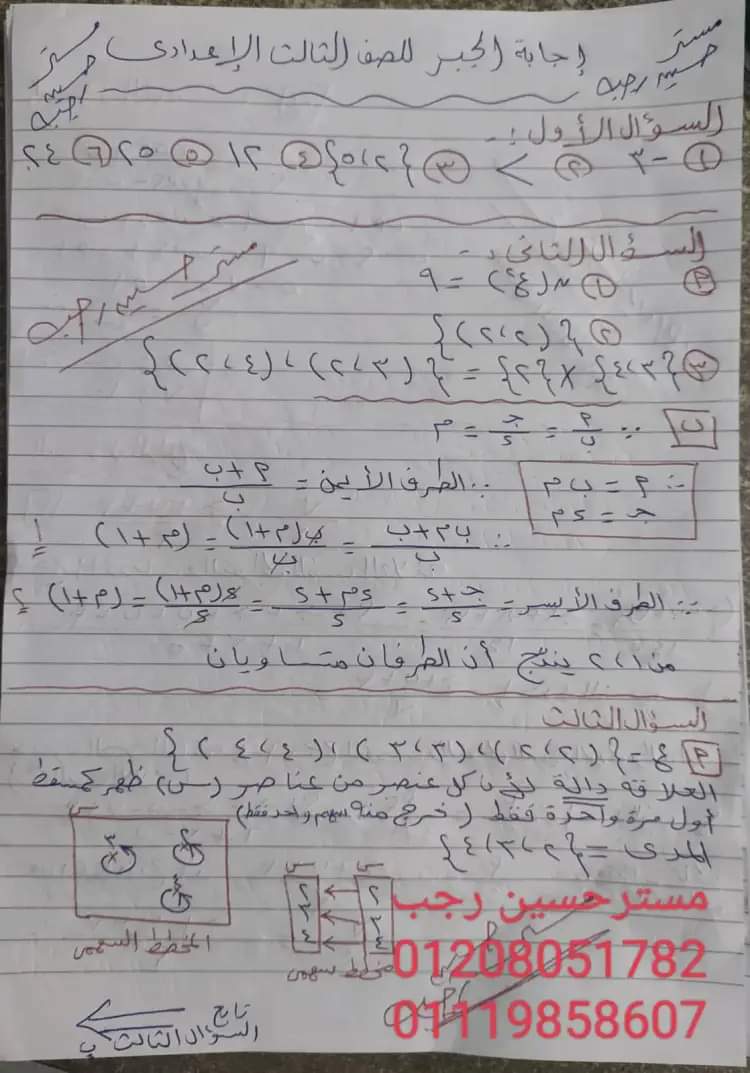 مستر حسين رجب
إجابة الجبر للصف الثالث الإعدادى
مستر حسين رجب
السؤال الأول :-
① -٣ ② > ③ {٥،٢} ④ ١٢ ⑤ ٢٥ ⑥ ٢٤
السؤال الثانى :-
مستر حسين رجب
٩ = (٤²)
② {(٢،٢)}
③ {٣،٤} × {٢} = {(٣،٢)،(٤،٢)}
ب ∵ م/ب = جـ/د = م
∴ م = ب م
جـ = د م
∴ الطرف الأيمن = م+ب/ب
∴ ب م+ب/ب = ب(م+١)/ب = (م+١) ١
∴ الطرف الأيسر = جـ+د/د = د م+د/د = د(م+١)/د = (م+١) ٢
من ١،٢ ينتج أن الطرفان متساويان
السؤال الثالث
م ع = {(٢،٢)،(٣،٣)،(٤،٤)}
العلاقة دالة لأن كل عنصر من عناصر (س) ظهر كمسقط
أول مرة واحدة فقط (خرج منه سهم واحد فقط)
المدى = {٢،٣،٤}
س
٣ ٢
٤
المخطط السهمى
س س
٢ ٢
٣ ٣
٤ ٤
مخطط سهمى
مستر حسين رجب
01208051782
01119858607
تابع
السؤال الثالث ب